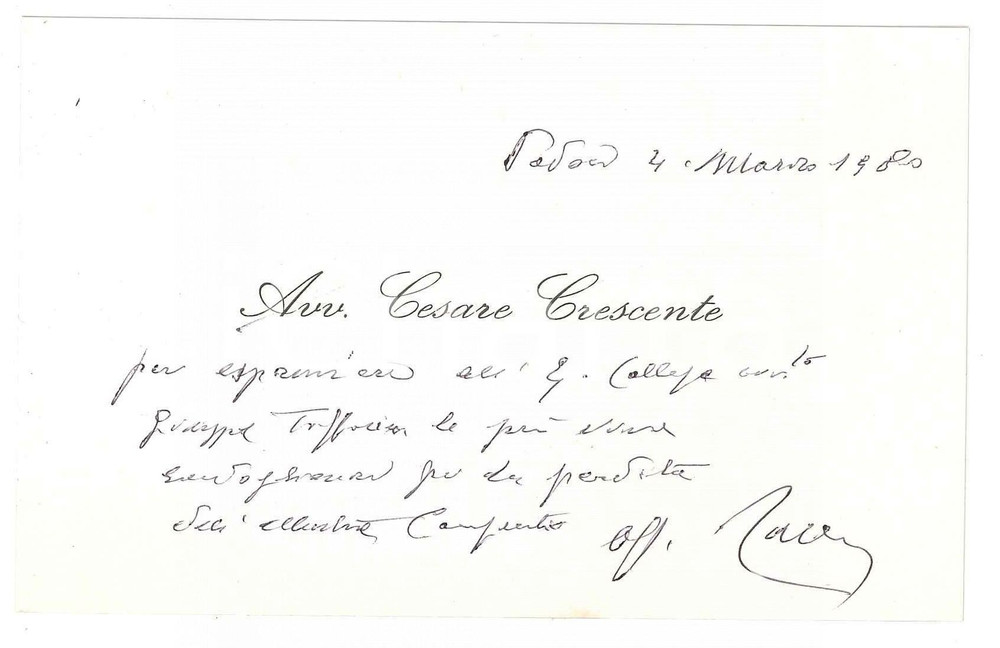 Padova 4 Marzo 1980
Avv. Cesare Crescente
per esprimere all' Eg. Collega avv.to
Giuseppe le più vive
condoglianze per la perdita
dell' illustre Congiunto aff.